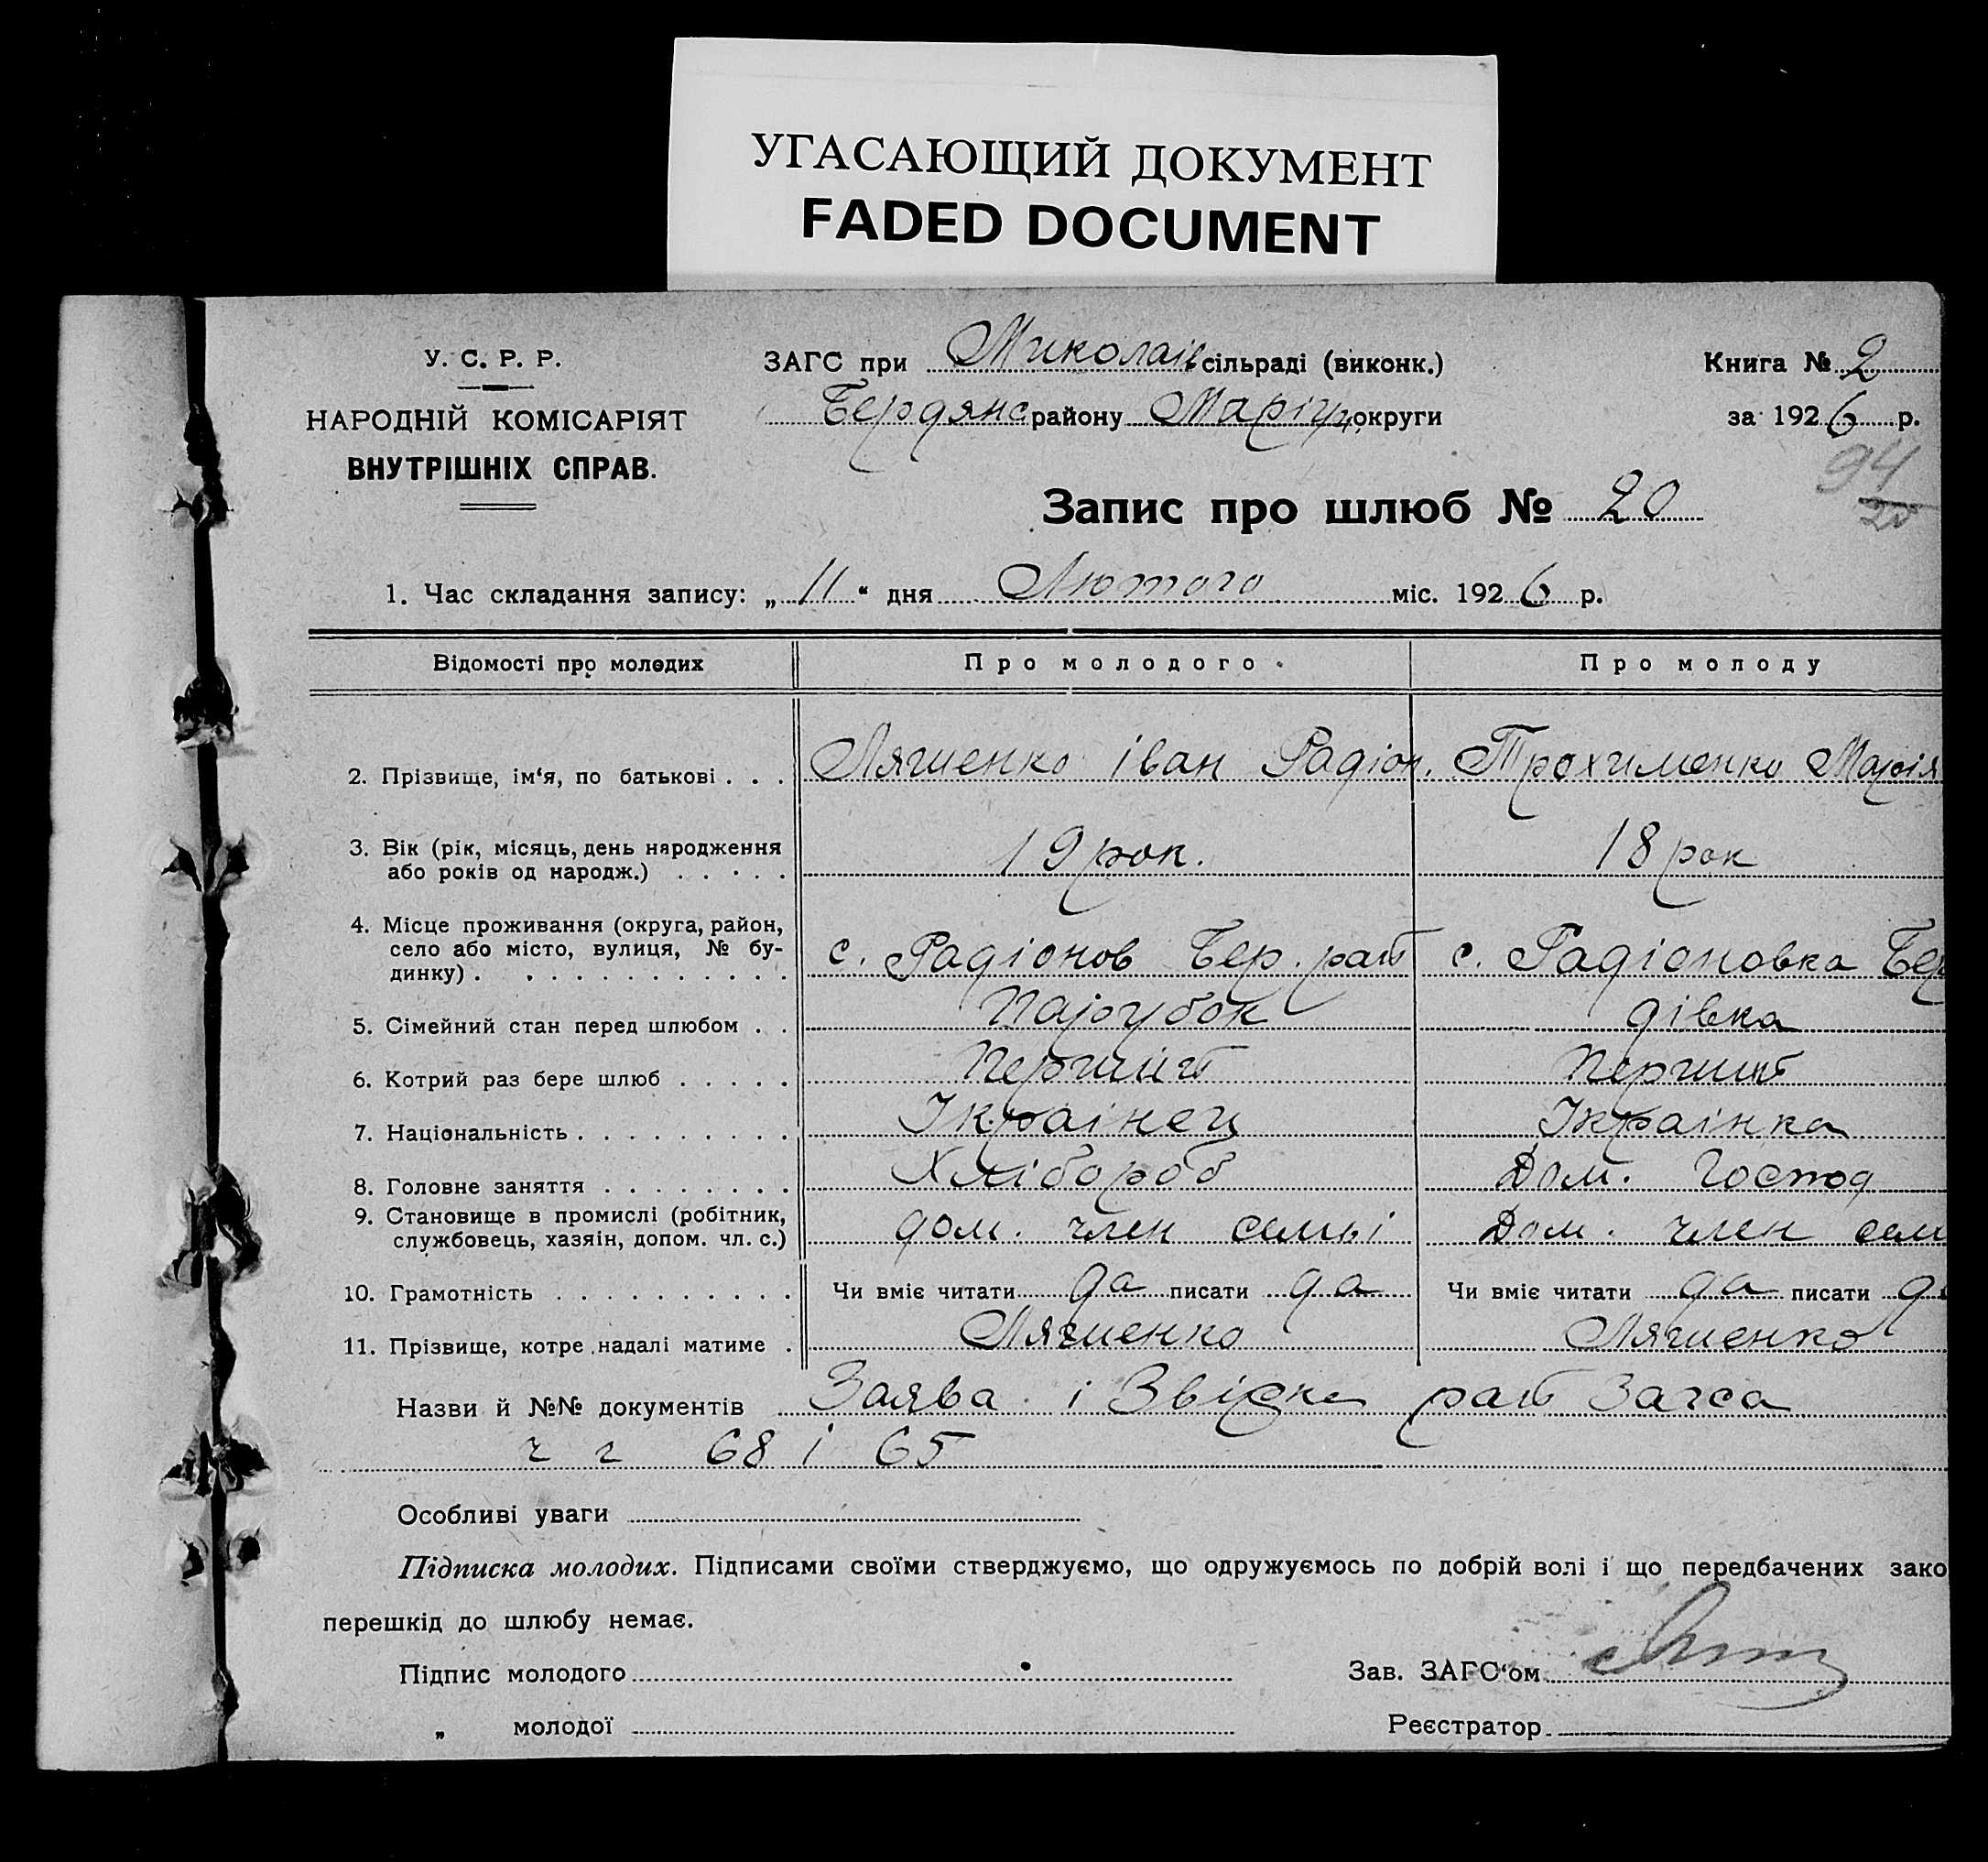 УГАСАЮЩИЙ ДОКУМЕНТ
FADED DOCUMENT
У. С. Р. Р.
НАРОДНІЙ КОМІСАРІЯТ
ВНУТРІШНІХ СПРАВ.
ЗАГС при Миколаів сільраді (виконк.)
Бердянс району Маріуп. округи
Книга № 2
за 1926 р.
94
20
Запис про шлюб № 20
1. Час складання запису: „ 11 “ дня Лютого міс. 1926 р.
Відомості про молодих Про молодого Про молоду
2. Прізвище, ім‘я, по батькові . . . Ляшенко іван Радіон. Трохименко Марія
3. Вік (рік, місяць, день народження
або років од народж.) . . . . . 19 рок. 18 рок
4. Місце проживання (округа, район,
село або місто, вулиця, № бу-
динку) . . . . . . . . . . . . с. Радіонов Бер. рай с. Радіоновка Бер
5. Сімейний стан перед шлюбом . . Парубок дівка
6. Котрий раз бере шлюб . . . . . Перший Перший
7. Національність . . . . . . . . . Украінец Украінка
8. Головне заняття . . . . . . . . Хлібороб Дом. Господ
9. Становище в промислі (робітник,
службовець, хазяін, допом. чл. с.) дом. член семьі Дом. член сем
10. Грамотність . . . . . . . . . . Чи вміє читати да писати да Чи вміє читати да писати да
11. Прізвище, котре надалі матиме . Ляшенко Ляшенко
Назви й №№ документів Заява і Звідка рай Загса
ч г 68 і 65
Особливі уваги
Підписка молодих. Підписами своїми стверджуємо, що одружуємось по добрій волі і що передбачених зако
перешкід до шлюбу немає.
Підпис молодого Зав. ЗАГС‘ом
„ молодої Реєстратор